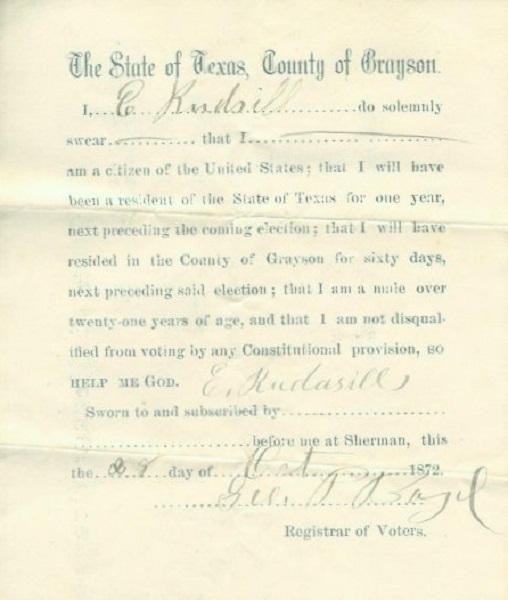 The State of Texas, County of Grayson.
I, E Rudasill do solemnly
swear that I
am a citizen of the United States; that I will have
been a resident of the State of Texas for one year,
next preceding the coming election; that I will have
resided in the County of Grayson for sixty days,
next preceding said election; that I am a male over
twenty-one years of age, and that I am not disqual-
ified from voting by any Constitutional provision, SO
HELP ME GOD. E. Rudasill
Sworn to and subscribed by
before me at Sherman, this
the 28 day of Oct 1872.
Geo.
Registrar of Voters.